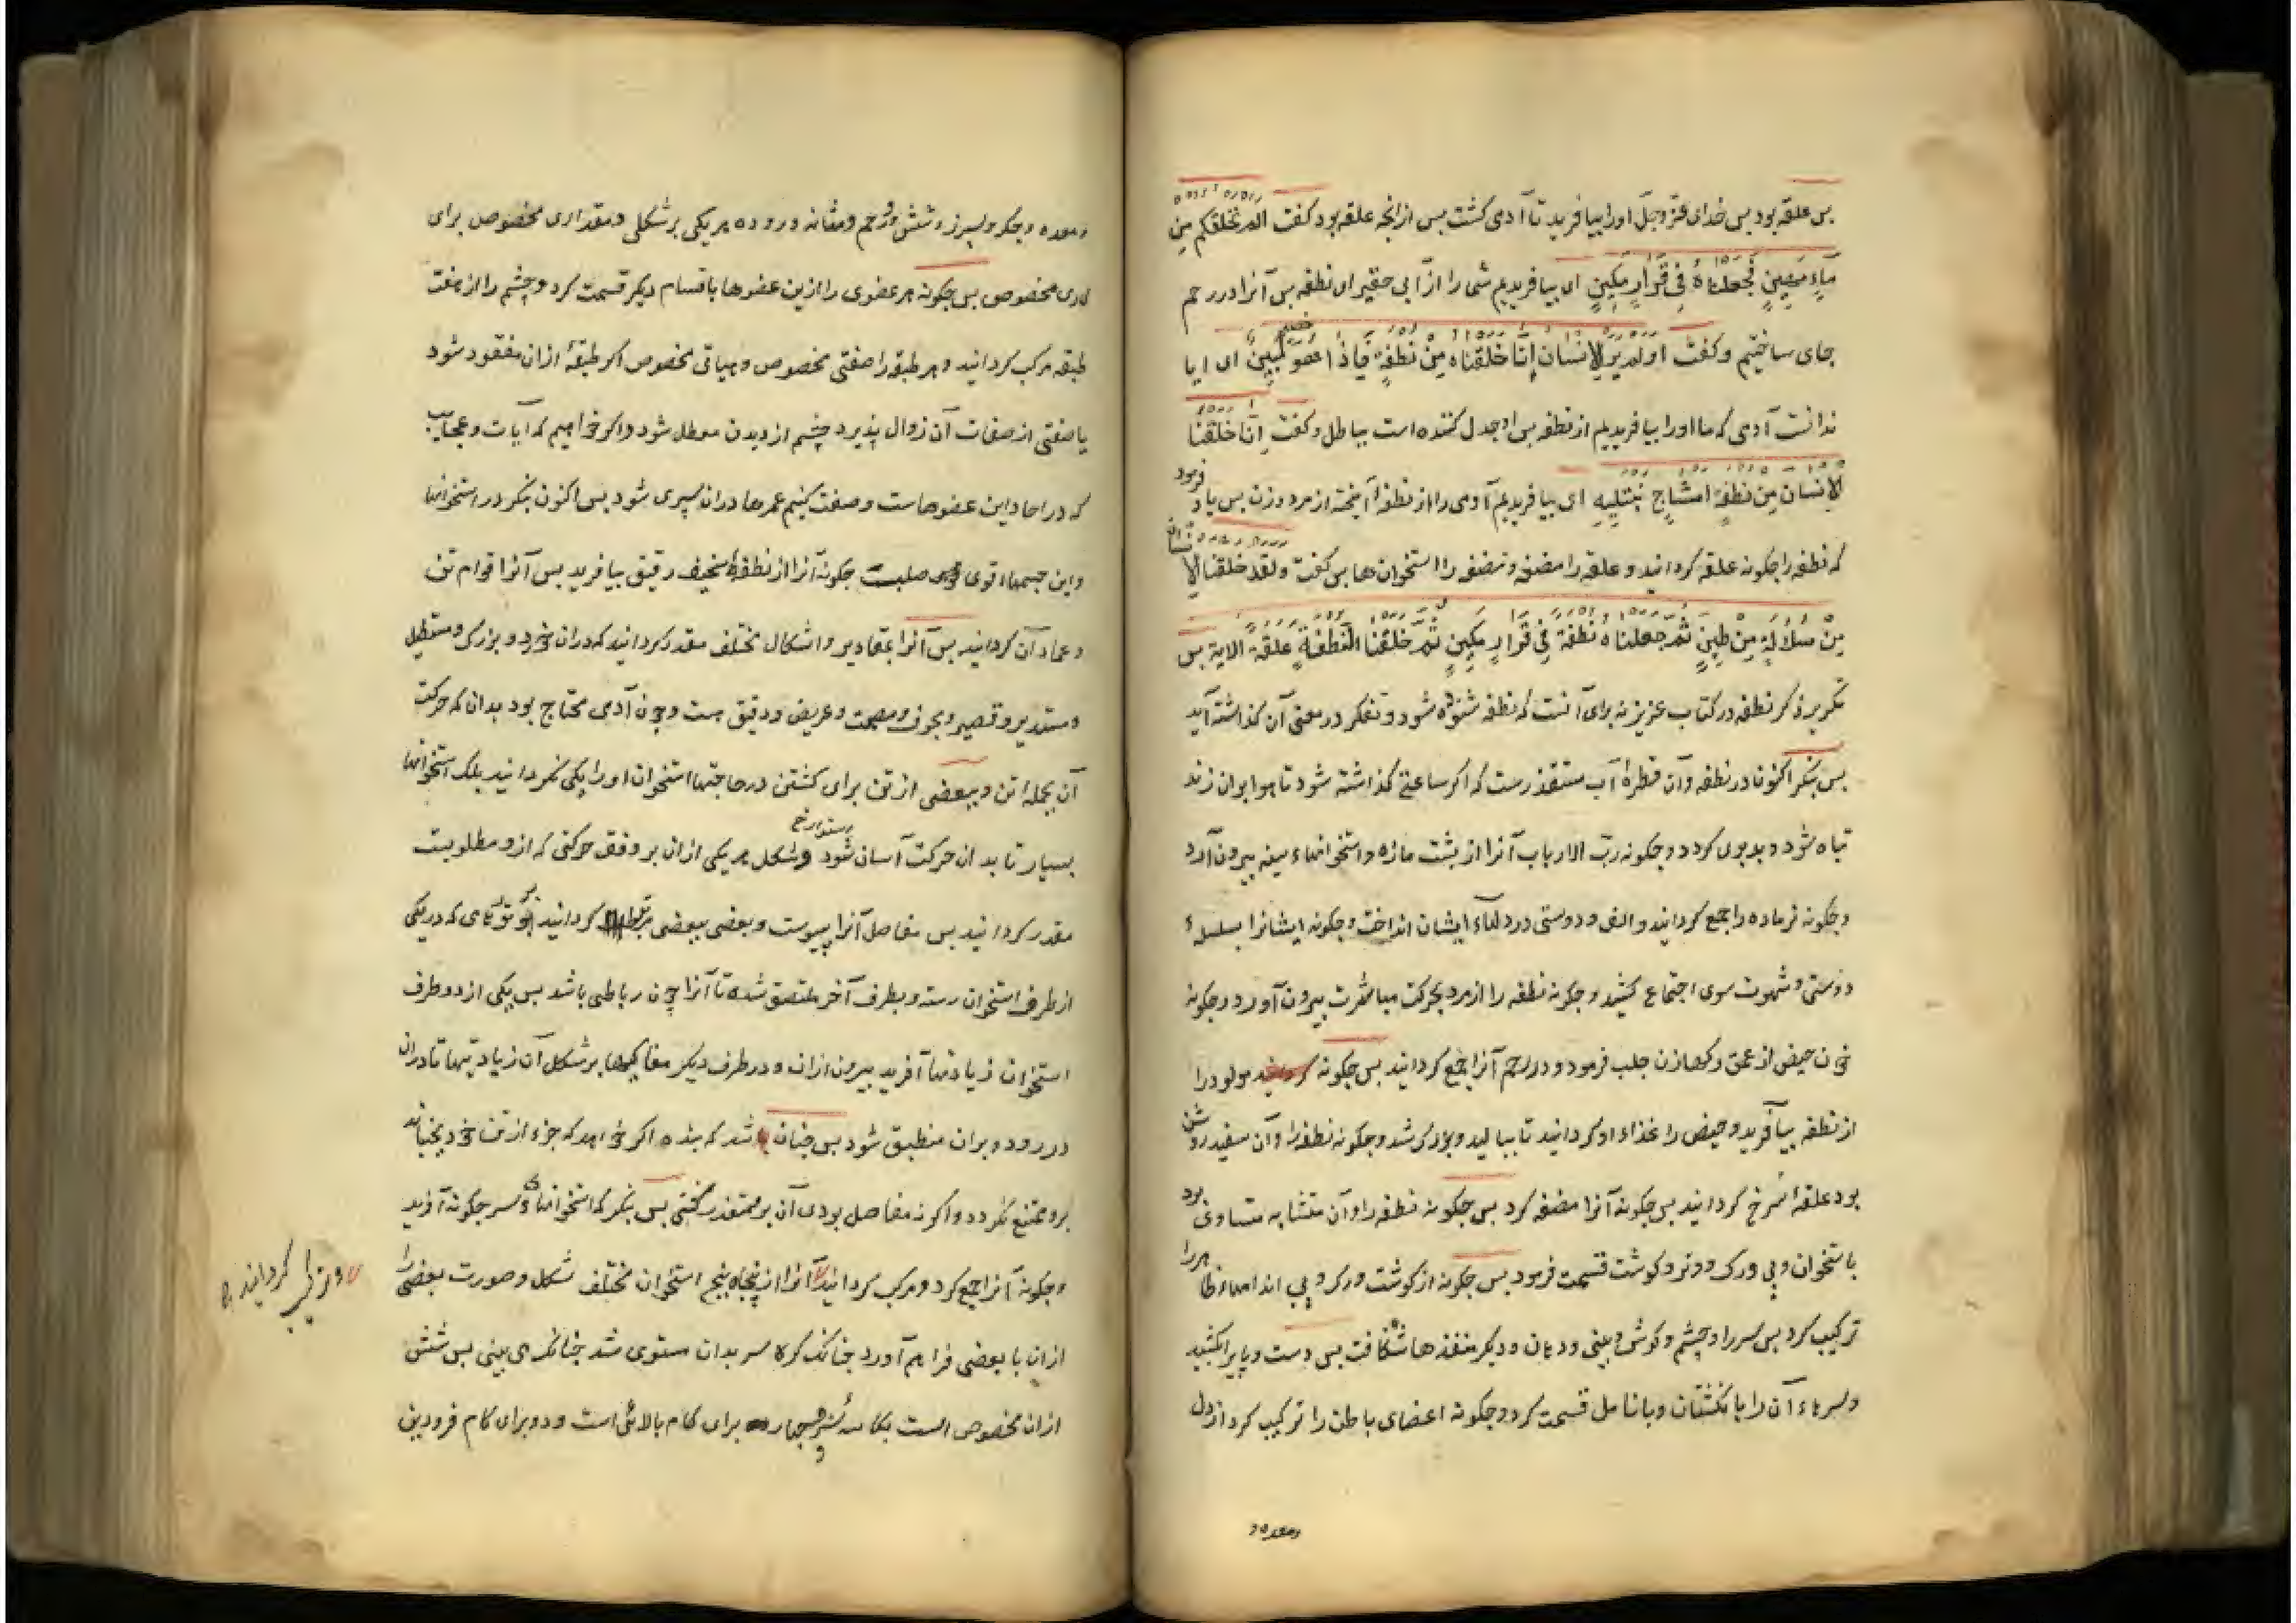 پس علقه بود پس خدای عزّوجلّ اورا بیافرید تا آدمی کشت پس ازانچه علقه بود کفت الم نخلقکم من
مآءٍ مهینٍ فجعلناهُ فی قرارٍ مکینٍ ای بیافریدیم شما را از آبی حقیر ای نطفه پس آنرا در رحم
جای ساختیم و کفت اولم یر الانسان انّا خلقناه من نطفةٍ فاذا هو خصیم مبین ای ایا
ندانست آدمی که ما اورا بیافریدیم از نطفه پس او جدل کننده است بباطل و کفت انّا خلقنا
الانسان من نطفةٍ امشاجٍ نبتلیه ای بیافریدیم آدمی را از نطفهٔ آمیخته از مرد و زن پس یاد فرمود
که نطفه را چکونه علقه کردانید و علقه را مضغه و مضغه را استخوان ها پس کفت و لقد خلقنا الانسان
من سلالةٍ من طینٍ ثمّ جعلناه نطفة فی قرارٍ مکینٍ ثمّ خلقنا النطفة علقة الایة پس
تکریر ذکر نطفه در کتاب عزیز نه برای آنست که نطفه شنوده شود و تفکر در معنی آن کذاشته آید
پس بنکر اکنون در نطفه و آن قطرهٔ آب مستقذرست که اکر ساعتی کذاشته شود تا هوا بران زند
تباه شود و بدبوی کردد و چکونه ربّ الارباب آنرا از پشت مازه و استخوانهاء سینه بیرون آورد
و چکونه نر ماده را جمع کردانید و الف و دوستی در دلهاء ایشان انداخت و چکونه ایشانرا بسلسلهٔ
دوستی و شهوت سوی اجتماع کشید و چکونه نطفه را از مرد بحرکت مباشرت بیرون آورد و چکونه
خون حیض از عمق رکهازن جلب فرمود و در رحم آنرا جمع کردانید پس چکونه مولود را
از نطفه بیآفرید و حیض را غذاء او کردانید تا ببالید و بزرک شد و چکونه نطفه را و آن سفید روشن
بود علقهٔ سرخ کردانید پس چکونه آنرا مضغه کرد پس چکونه نطفه را و آن متشابه متساوی بود
باستخوان و پی و رک و وتر و کوشت قسمت فرمود پس چکونه از کوشت و رک و پی اندامهاء ظاهر را
ترکیب کرد پس سر را و چشم و کوش و بینی و دهان و دیکر منفذها شکافت پس دست و پای را کشید
و سرهاء آن را بانکشتان و بانامل قسمت کرد و چکونه اعضای باطن را ترکیب کرد از دل
ومعده و
ومعده و جکر و سپرز و شش و رحم و مثانه و روده هر یکی بر شکلی و مقداری مخصوص برای
کاری مخصوص پس چکونه هر عضوی را ازین عضوها باقسام دیکر قسمت کرد و چشم را از هفت
طبقه مرکب کردانید و هر طبقه را صفتی مخصوص و هیاتی مخصوص اکر طبقهٔ ازان مفقود شود
یا صفتی از صفات آن زوال پذیرد چشم از دیدن معطل شود و اکر خواهیم که آیات و عجایب
که در احاد این عضوهاست وصفت کنیم عمرها دران سپری شود پس اکنون بنکر در استخوانها
و این جسمهاء قوی صلبت چکونه آنرا از نطفهٔ سخیف رقیق بیافرید پس آنرا قوام تن
و عماد آن کردانید پس آنرا بمقادیر و اشکال مختلف مقدر کردانید که دران خرد و بزرک و مستطیل
و مستدیر و قصیر و مجوف و مصمت و عریض و دقیق هست و چون آدمی محتاج بود بدان که حرکت
آن بجملهٔ تن و ببعضی از تن برای کشتن در حاجتها استخوان اورا یکی نکردانید بلک استخوانها
بسیار تا بدان حرکت آسان شود و شکل هر یکی ازان بر وفق حرکتی که ازو مطلوبست
مقدر کردانید پس مفاصل آنرا پیوست و بعضی ببعضی کردانید که در یکی
از طرف استخوان رسته و بطرف آخر ملتصق شده تا آنرا چون رباطی باشد پس یکی از دو طرف
استخوان زیادتها آفرید بیرون ازان و در طرف دیکر مغاکیها بر شکل آن زیادتیها تا دران
در رود و بران منطبق شود پس چنان باشد که بنده اکر خواهد که جزء از تن خود بجنباند
برو ممتنع نکردد و اکر نه مفاصل بودی آن برو متعذر کشتی پس بنکر که استخوانهای سر چکونه آفرید
و چکونه آنرا جمع کرد و مرکب کردانید آنرا از پنجاه پنج استخوان مختلف شکل و صورت بعضی را
ازان با بعضی فراهم آورد چنانک کرهٔ سر بدان مستوی شد چنانک می بینی پس شش
ازان مخصوص است بکاسه سر و چهارده برای کام بالائی است و دو برای کام فرودین